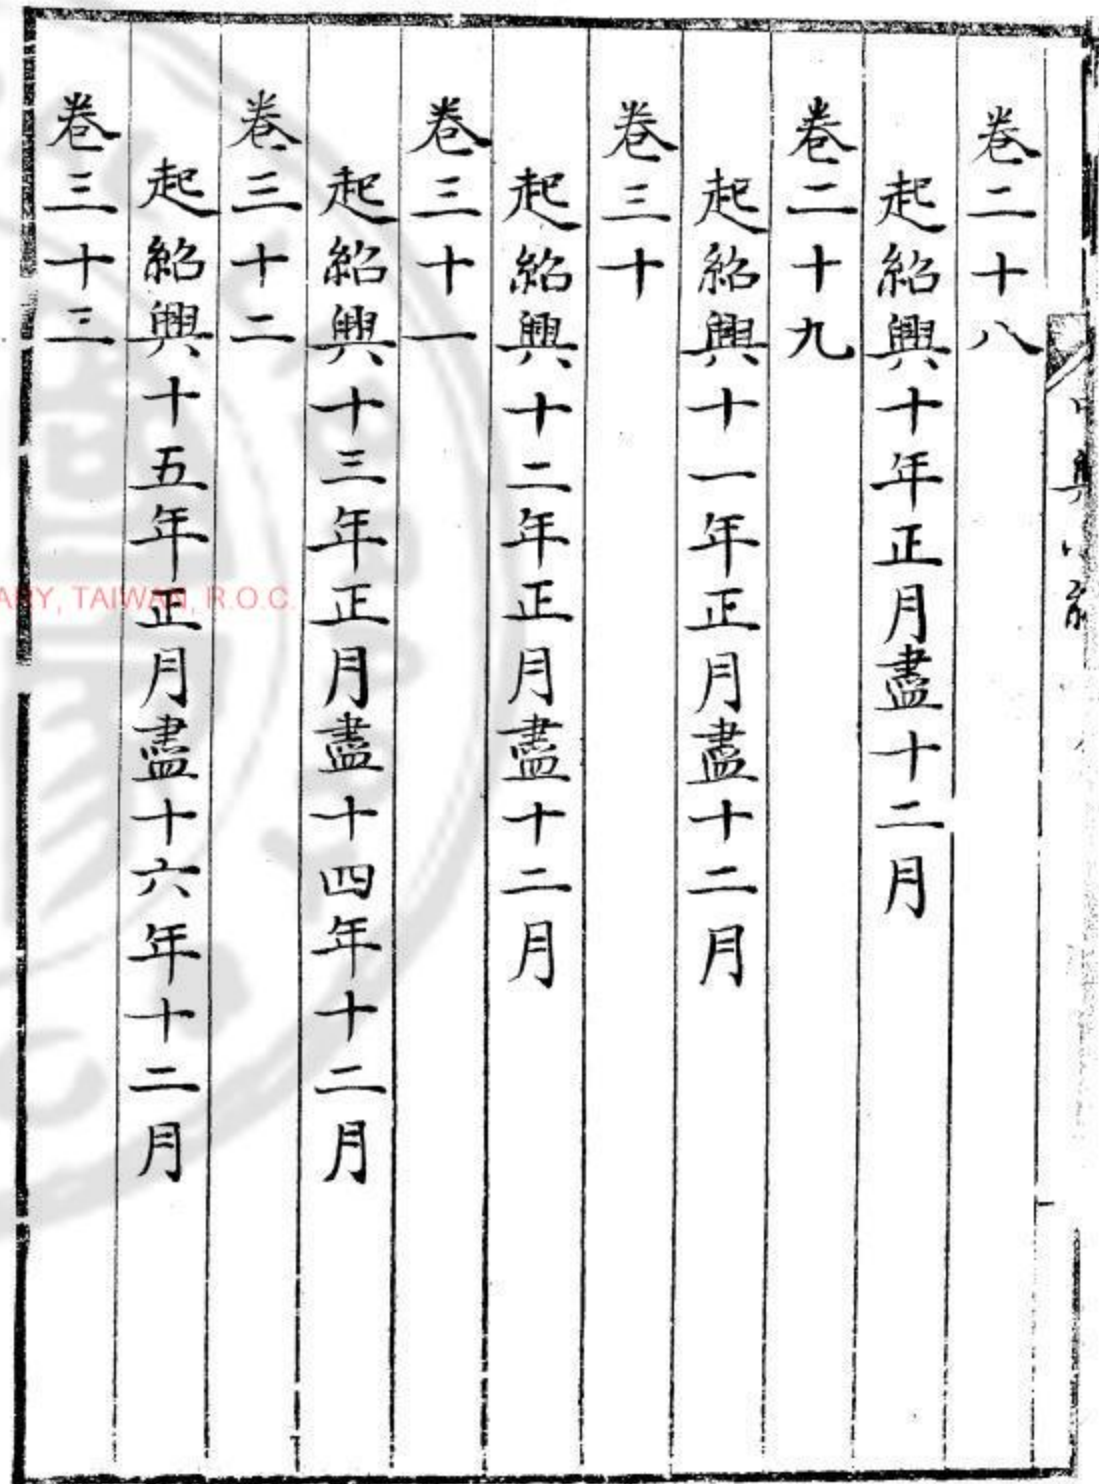 卷二十八
起紹興十年正月盡十二月
卷二十九
起紹興十一年正月盡十二月
卷三十
起紹興十二年正月盡十二月
卷三十一
起紹興十三年正月盡十四年十二月
卷三十二
起紹興十五年正月盡十六年十二月
卷三十三
TAIWAN, R.O.C.